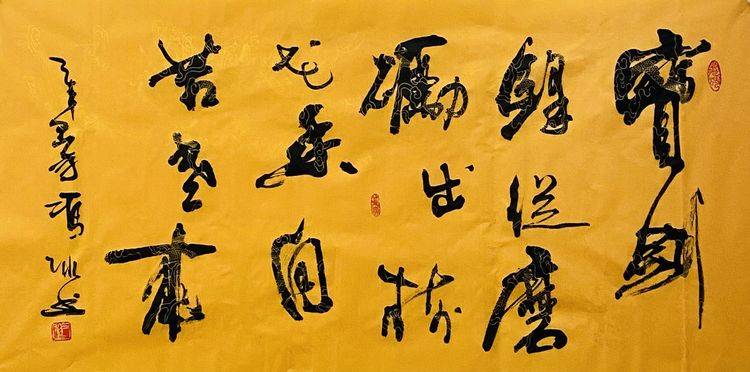 寶劍
鋒從磨
礪出梅
花香自
苦寒來